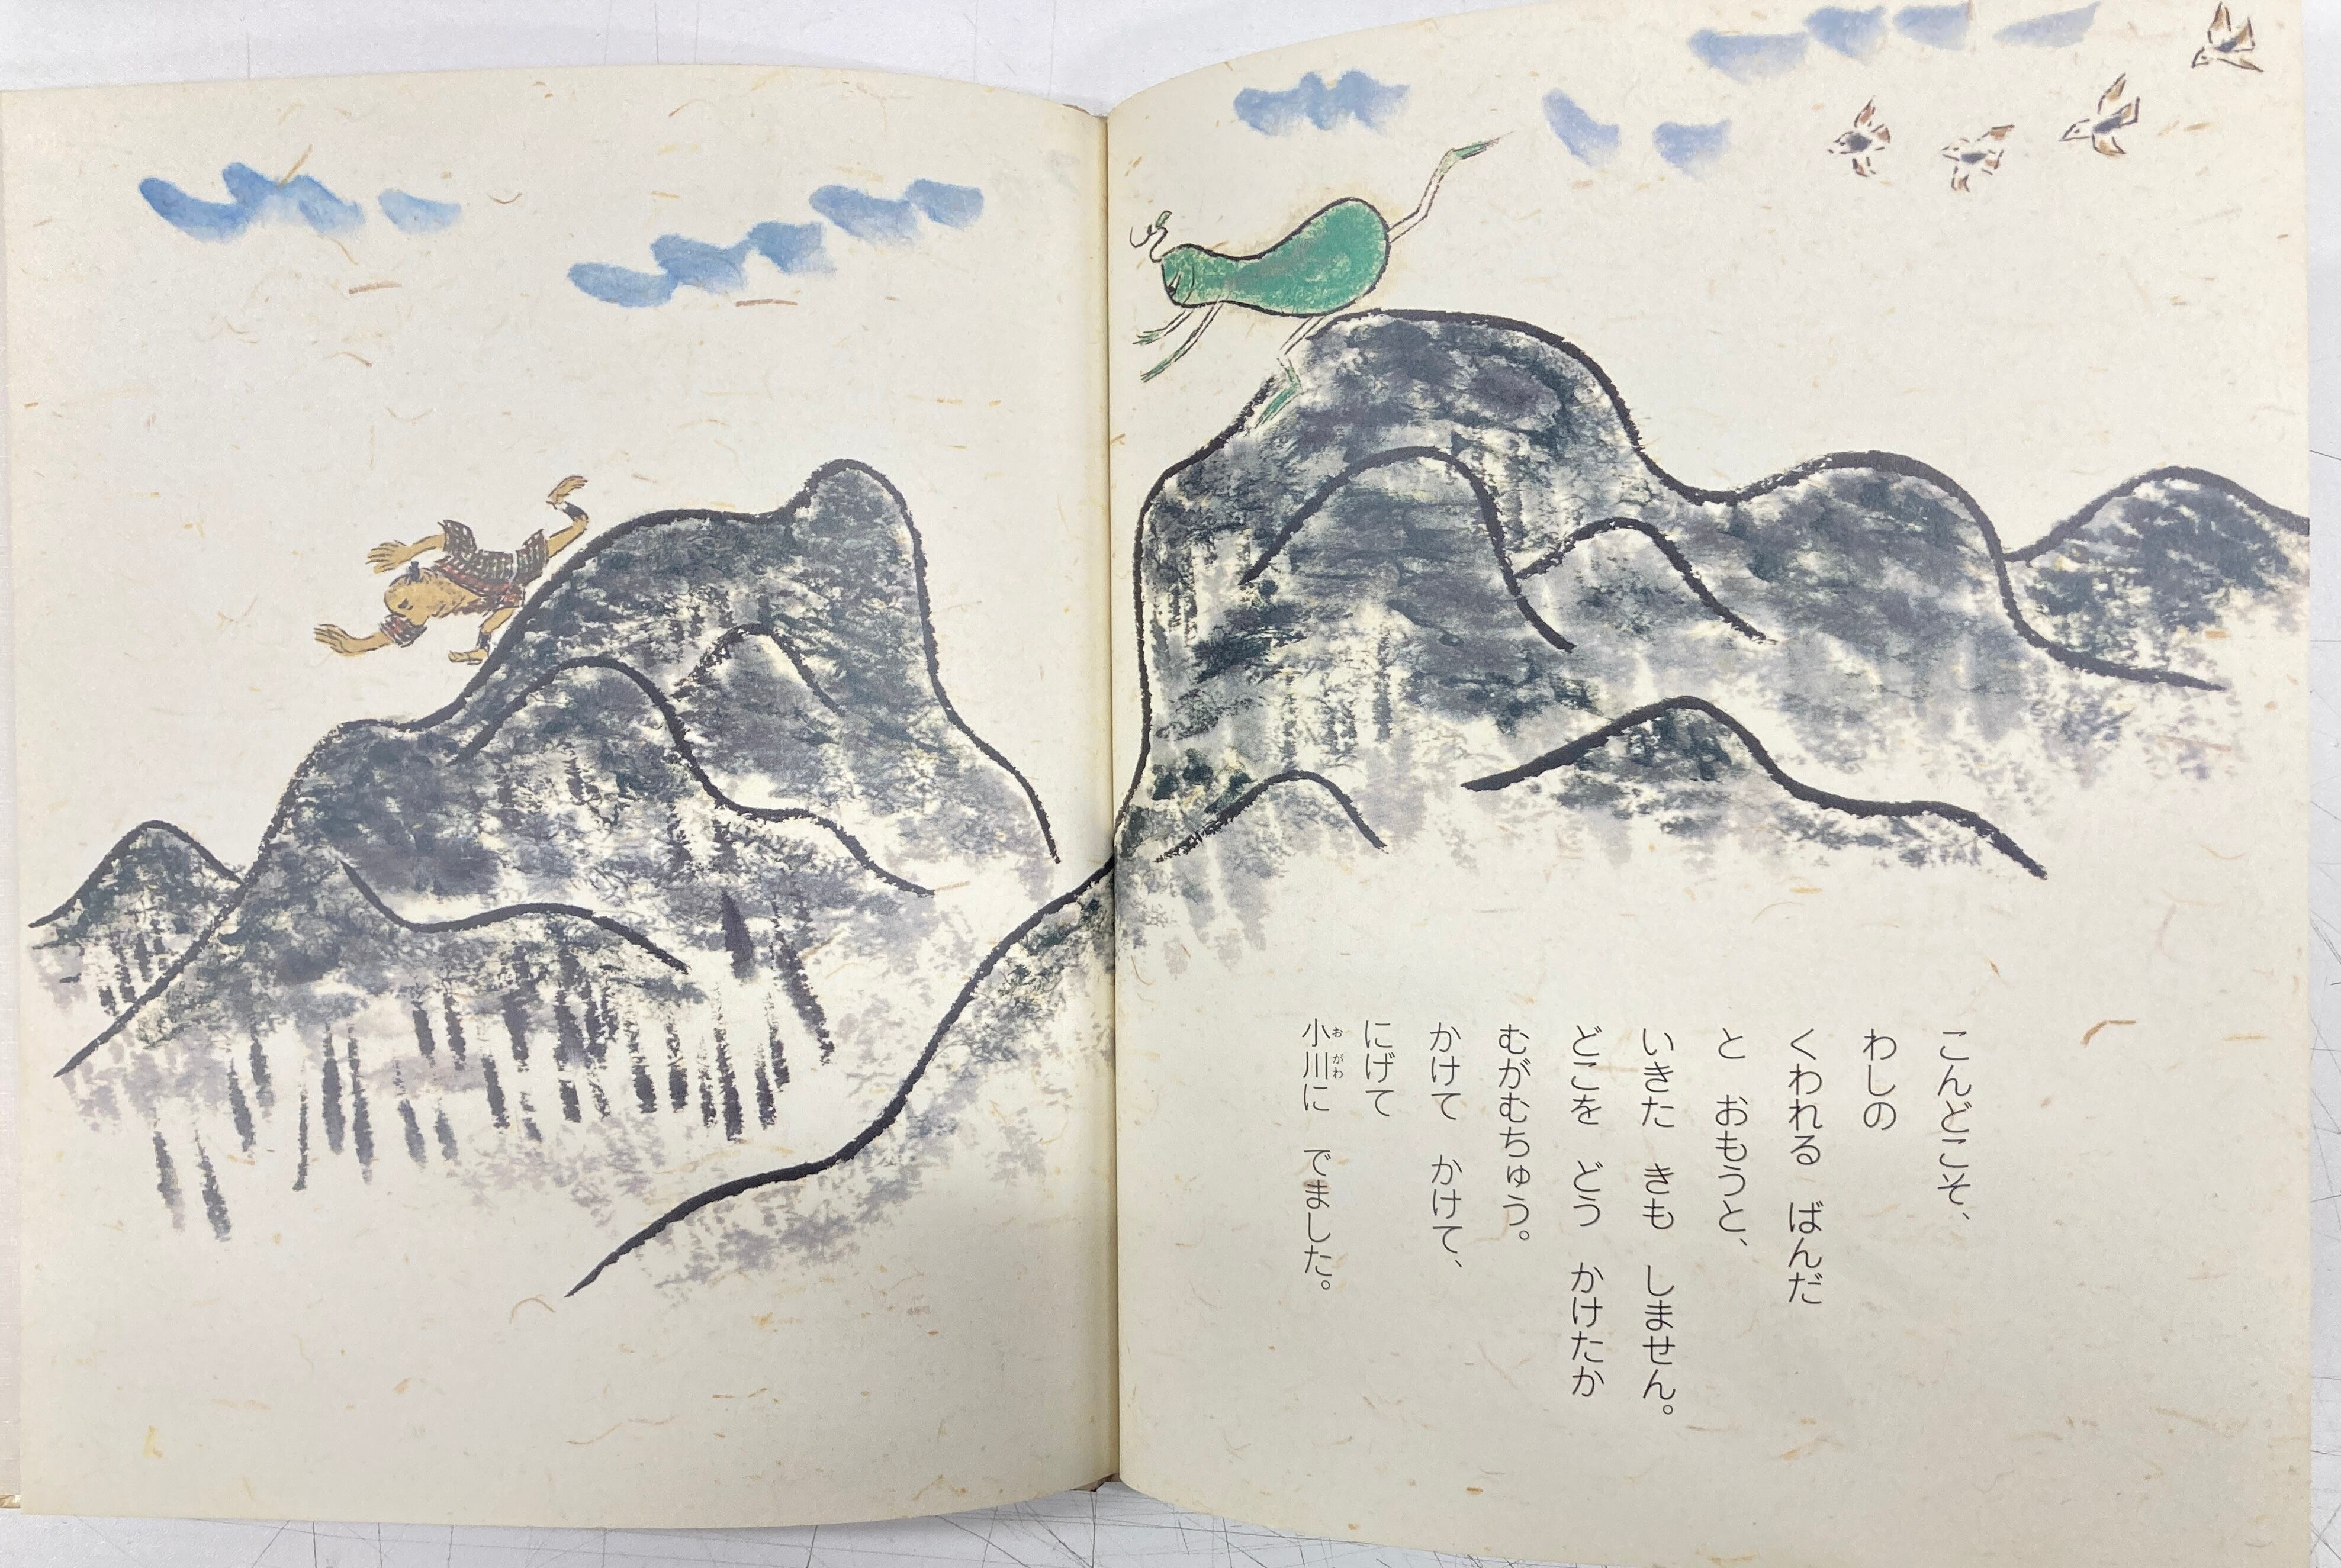 こんどこそ、
わしの
くわれる ばんだ
と おもうと、
いきた きも しません。
どこを どう かけたか
むがむちゅう。
かけて かけて、
にげて
小川に でました。
おがわ